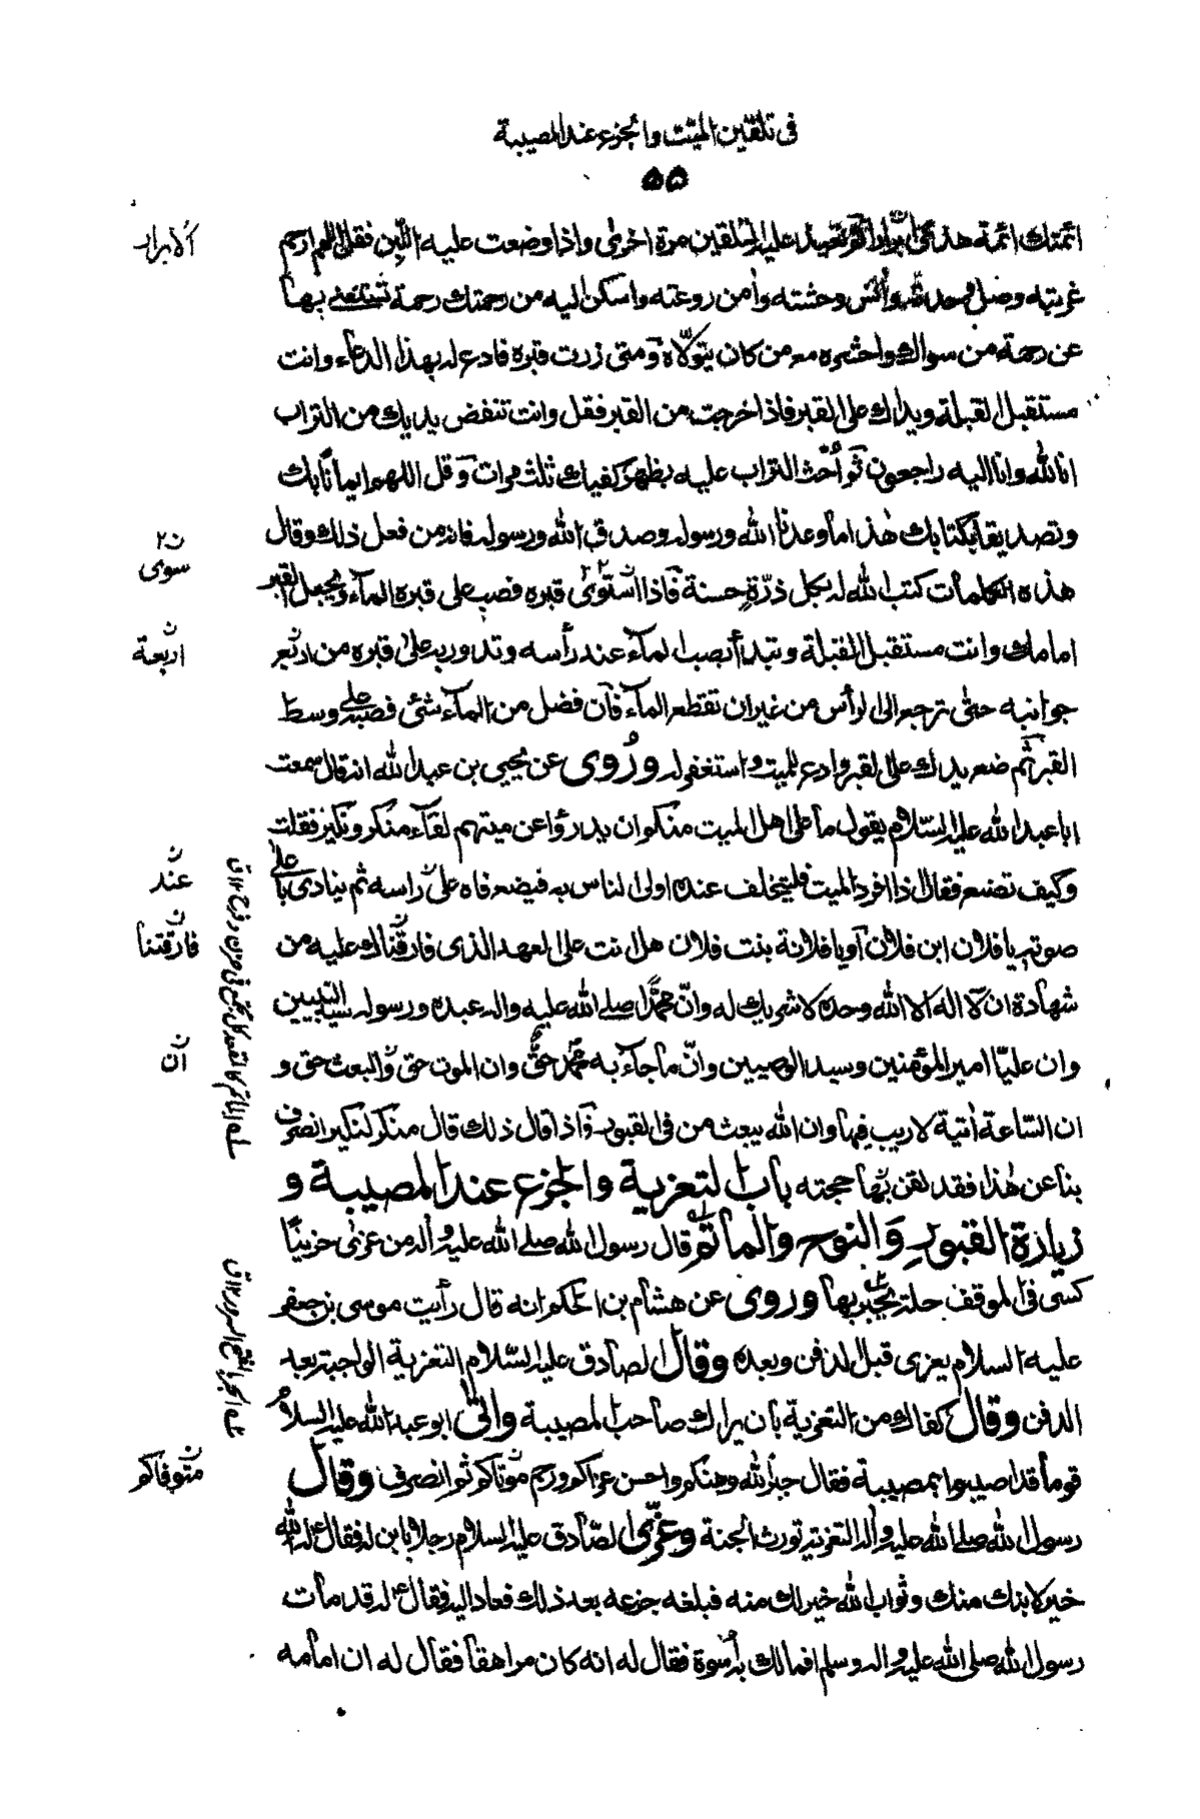 فى تلقين الميّت والجزع عند المصيبة
۵۵
ائمتك ائمة هدى ابرار ثم تعيد عليه التلقين مرة اخرى واذا وضعت عليه اللبن فقل اللهم ارحم
الابرار
غربته وصل وحدته وانس وحشته وامن روعته واسكن اليه من رحمتك رحمة تستغنى بها
عن رحمة من سواك واحشره مع من كان يتولّاه ومتى زرت قبره فادع له بهذا الدعاء وانت
مستقبل القبلة ويداك على القبر فاذا خرجت من القبر فقل وانت تنفض يديك من التراب
انا لله وانا اليه راجعون ثم أحث التراب عليه بظهر كفيك ثلث مرات وقل اللهم ايمانا بك
وتصديقا بكتابك هذا ما وعدنا الله ورسوله وصدق الله ورسوله فانه من فعل ذلك وقال
سوى
هذه الكلمات كتب الله له بكل ذرّة حسنة فاذا استوى قبره فصب على قبره المآء ويجعل القبر
امامك وانت مستقبل القبلة وتبدأ بصب المآء عند رأسه وتدور به على قبره من اربع
اربعة
جوانبه حتى ترجع الى الرأس من غير ان تقطع المآء فان فضل من المآء شئ فصبه على وسط
القبر ثم ضع يدك على القبر وادع للميت واستغفر له وروى عن يحيى بن عبد الله انه قال سمعت
ابا عبد الله عليه السّلام يقول ما على اهل الميت منكم ان يدرؤا عن ميتهم لقآء منكر ونكير فقلت
وكيف نصنع فقال اذا افرد الميت فليتخلف عنده اولى الناس به فيضع فاه على راسه ثم ينادى باعلى
عند
صوته يا فلان ابن فلان او يا فلانة بنت فلان هل انت على العهد الذى فارقناك عليه من
فارقتنا
شهادة ان لا اله الا الله وحده لا شريك له وانّ محمّدا صلى الله عليه واله عبده ورسوله سيد النبيين
وان عليّا امير المؤمنين وسيد الوصيين وانّ ما جاء به محمد حقّ وان الموت حق والبعث حق و
ان
ان السّاعة اتية لا ريب فيها وان الله يبعث من فى القبور فاذا قال ذلك قال منكر لنكير انصرف
بنا عن هذا فقد لقن بها حجته باب التعزية والجزع عند المصيبة و
زيارة القبور والنوح والمأتم قال رسول الله صلى الله عليه واله من عزى حزينا
كسى فى الموقف حلة يحبر بها وروى عن هشام بن الحكم انه قال رأيت موسى بن جعفر
عليه السلام يعزى قبل الدفن وبعده وقال الصادق عليه السّلام التعزية الواجبة بعد
الدفن وقال كفاك من التعزية بان يراك صاحب المصيبة واتى ابو عبد الله عليه السلام
قوما قد اصيبوا بمصيبة فقال جبر الله وهنكم واحسن عزاكم ورحم موتاكم ثم انصرف وقال
متوفاكم
رسول الله صلى الله عليه واله التعزية تورث الجنة وعزّى الصّادق عليه السلام رجلا بابن له فقال له الله
خير لابنك منك وثواب الله خير لك منه فبلغه جزعه بعد ذلك فعاد اليه فقال له قد مات
رسول الله صلى الله عليه واله وسلم افما لك به أسوة فقال له انه كان مراهقا فقال له ان امامه